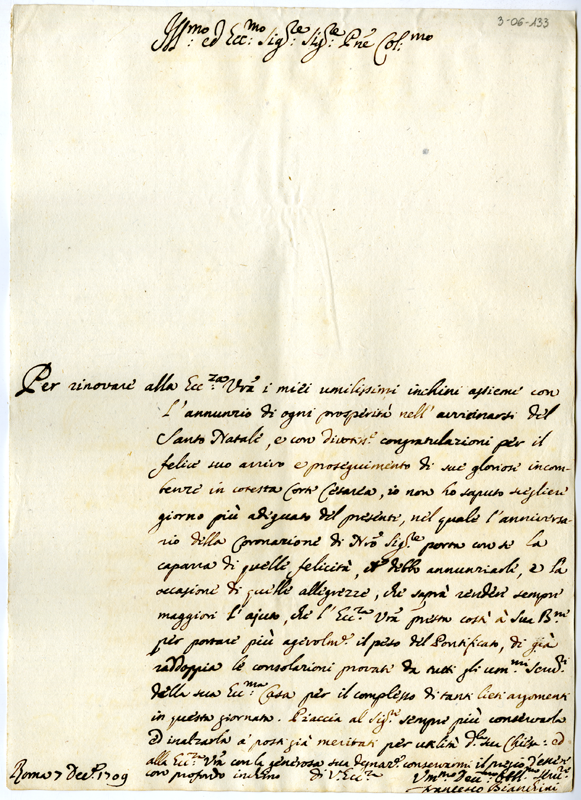 3-06-133
Ill:mo ed Ecc:mo Sig:re Sig:re Pne Col:mo
Per rinovare alla Ecc:za Vra i miei umilissimi inchini assieme con
l'annunzio di ogni prosperità nell'avvicinarsi del
Santo Natale, e con divotis.e congratulazioni per il
felice suo arrivo e proseguimento di sue gloriose incom-
benze in cotesta Corte Cesarea, io non ho saputo scegliere
giorno più adeguato del presente, nel quale l'anniversa-
rio della Coronazione di Nro Sig:re porta con se la
caparra di quelle felicità, debbo annunziarle, e la
occasione di quelle allegrezze, che saprà rendere sempre
maggiori l'ajuto, che l'Ecc:za Vra presta costà à Sua B:ne
per portare più agevolm:e il peso del Pontificato, di già
raddoppia le consolazioni provate da tutti gli um:mi Serv:ri
della sua Ecc:ma Casa per il complesso di tanti lieti argomenti
in questa giornata. Piaccia al Sig:re sempre più conservarla
ed inalzarla a' posti già meritati per utilità d:lla sua Chiesa: ed
alla Ecc:za Vra con la generosa sua conservarmi il pregio d'esser
con profondo inchino di V: Ecc:za
Roma 7 Dec:e 1709
Um:mo Serv:re
Francesco Bianchini